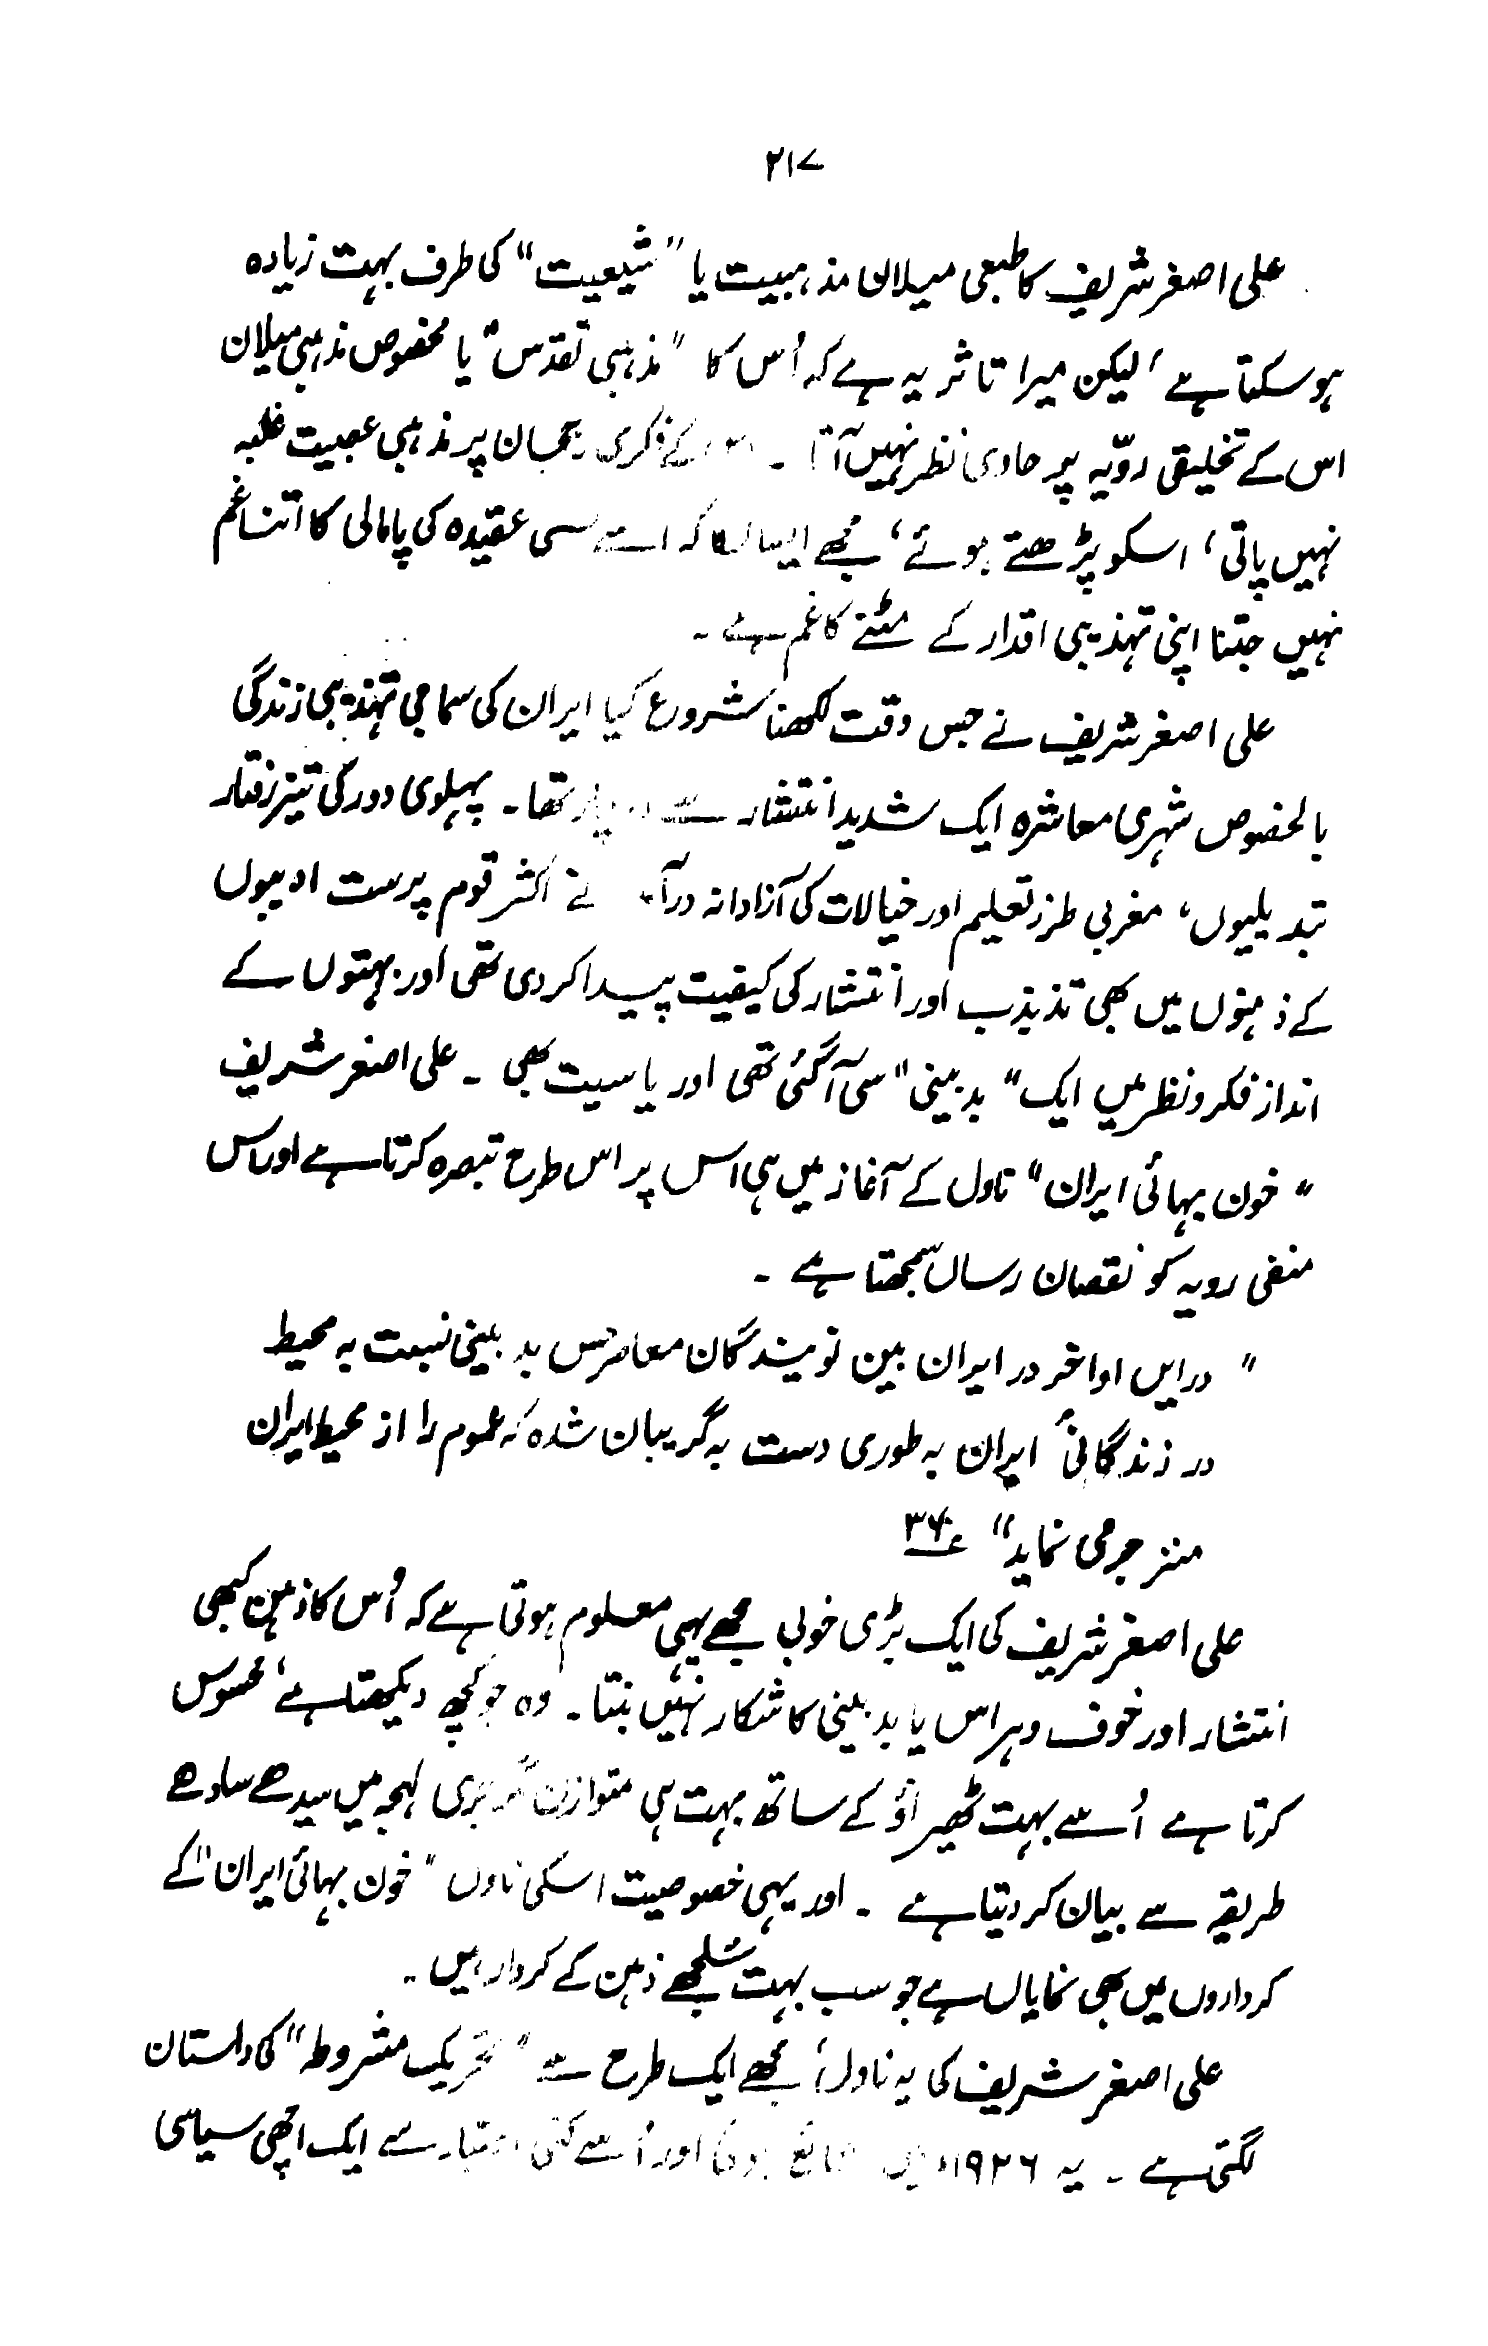 ۲۱۷
علی اصغر شریف کا طبعی میلان مذہبیت یا "شیعیت" کی طرف بہت زیادہ
ہو سکتا ہے، لیکن میرا تاثر یہ ہے کہ اُس کا "مذہبی تقدس" یا مخصوص مذہبی میلان
اس کے تخلیقی روّیہ پر حاوی نظر نہیں آتا ۔ کے فکری رجحان پر مذہبی عصبیت غلبہ
نہیں پاتی، اسکو پڑھتے ہوئے، مجھے ایسا لگا کہ اسے کسی عقیدہ کی پامالی کا اتنا غم
نہیں جتنا اپنی تہذیبی اقدار کے مٹنے کا غم ہے ۔
علی اصغر شریف نے جس وقت لکھنا شروع کیا ایران کی سماجی تہذیبی زندگی
بالخصوص شہری معاشرہ ایک شدید انتشار سے دوچار تھا ۔ پہلوی دور کی تیز رفتار
تبدیلیوں، مغربی طرز تعلیم اور خیالات کی آزادانہ درآمد نے اکثر قوم پرست ادیبوں
کے ذہنوں میں بھی تذبذب اور انتشار کی کیفیت پیدا کر دی تھی اور بہتوں کے
انداز فکر و نظر میں ایک "بدبینی" سی آ گئی تھی اور یاسیت بھی ۔ علی اصغر شریف
"خون بہائی ایران" ناول کے آغاز میں ہی اس پر اس طرح تبصرہ کرتا ہے اور اس
منفی رویہ کو نقصان رساں سمجھتا ہے ۔
"درایں اواخر در ایران بین نویسندگان معاصر حس بد بینی نسبت بہ محیط
در زندگانیٔ ایران بہ طوری دست بہ گریبان شدہ کہ عموم را از محیط ایران
منزجر می نماید" ۳۶؎
علی اصغر شریف کی ایک بڑی خوبی مجھے یہی معلوم ہوتی ہے کہ اُس کا ذہن کبھی
انتشار اور خوف وہراس یا بدبینی کا شکار نہیں بنتا ۔ وہ جو کچھ دیکھتا ہے، محسوس
کرتا ہے اُسے بہت ٹھیراؤ کے ساتھ بہت ہی متوازن لہجہ میں سیدھے سادھے
طریقہ سے بیان کر دیتا ہے ۔ اور یہی خصوصیت اسکی ناول "خون بہائی ایران" کے
کرداروں میں بھی نمایاں ہے جو سب بہت سُلجھے ذہن کے کردار ہیں ۔
علی اصغر شریف کی یہ ناول، مجھے ایک طرح سے "تحریک مشروطہ" کی داستان
لگتی ہے ۔ یہ ۱۹۲۶ء میں شائع ہوئی اور اُسے کئی اعتبار سے ایک اچھی سیاسی